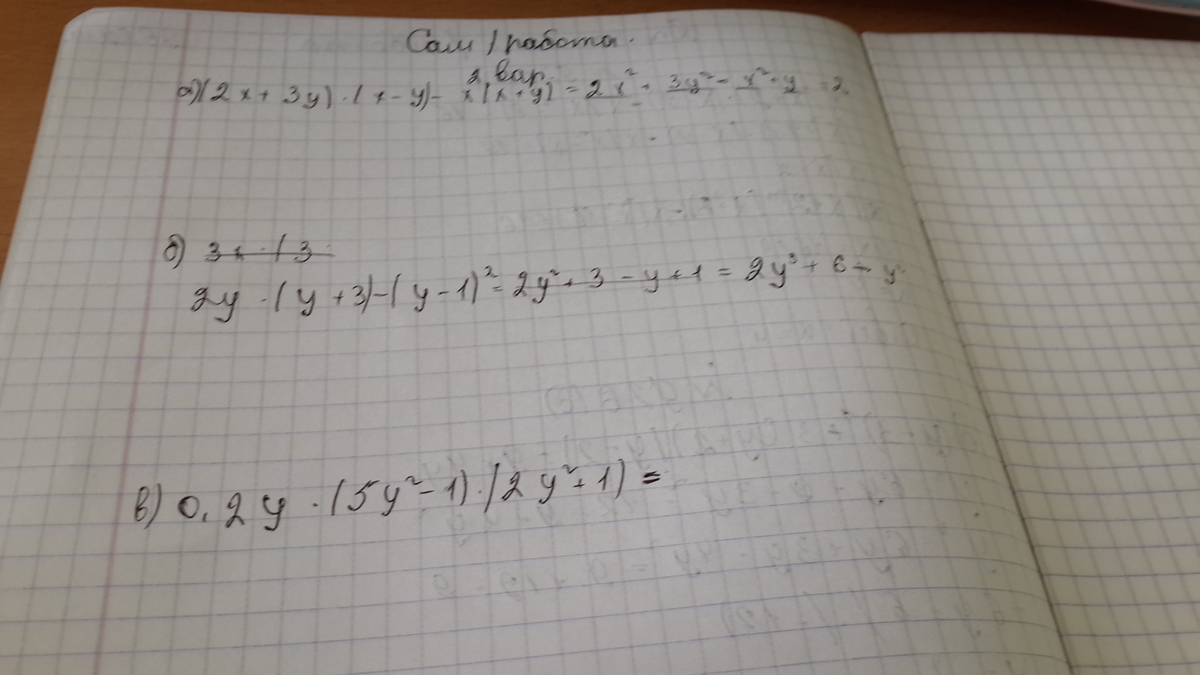 Сам/работа.
2 вар.
а)(2x + 3y) · (x - y) - x(x + y) = 2x² + 3y² - x² + y = 2
б) 3x · (3
2y · (y + 3) - (y - 1)² = 2y² + 3 - y + 1 = 2y³ + 6 - y
в) 0,2y · (5y² - 1) · (2y² + 1) =